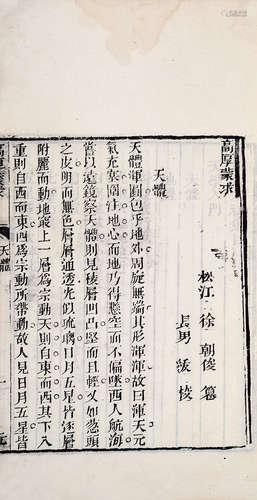 高厚蒙求
松江 徐朝俊 篹
長男 校
天體
天體渾圓包乎地外周旋無端其形渾渾故曰渾天元
氣充塞圍注地心而地乃得懸空而不偏墜西人航海
嘗以遠鏡察天體則見積層凹凸堅而且輕又如葱頭
之皮明而無色層層通透光似琉璃日月五星皆逐層
附麗而動地最上一層為宗動天則自東而西其下八
重則自西而東西為宗動所帶動故人見日月五星皆
天體